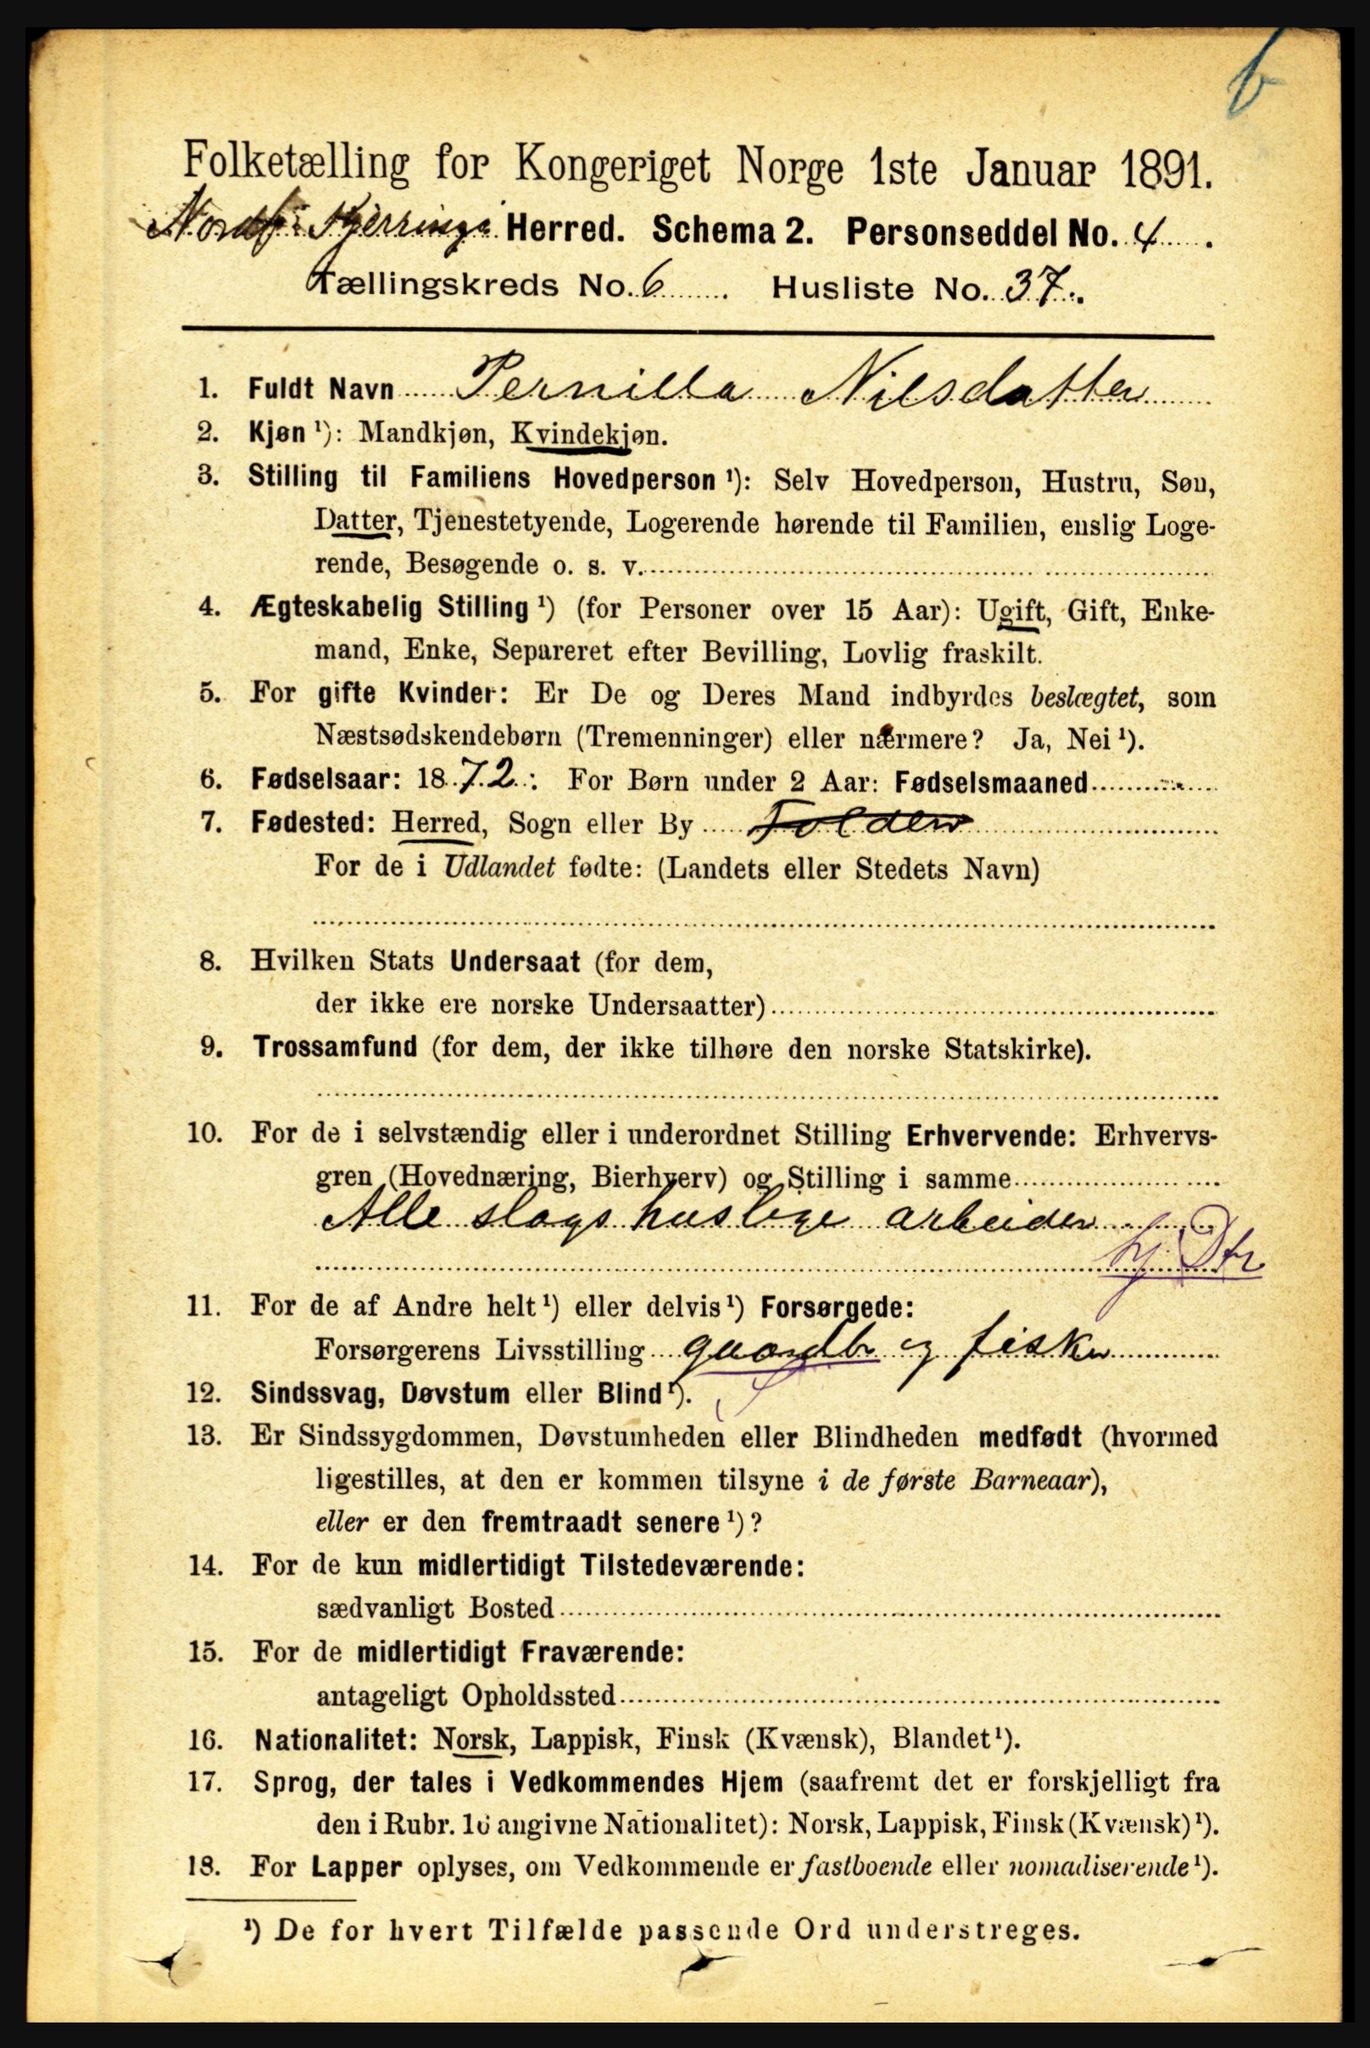 b
Folketælling for Kongeriget Norge 1ste Januar 1891.
Nordf: Kjerringø Herred. Schema 2. Personseddel No. 4.
Tællingskreds No. 6. Husliste No. 37.
1. Fuldt Navn Pernilla Nilsdatter
2. Kjøn ¹): Mandkjøn, Kvindekjøn.
3. Stilling til Familiens Hovedperson ¹): Selv Hovedperson, Hustru, Søn,
Datter, Tjenestetyende, Logerende hørende til Familien, enslig Loge-
rende, Besøgende o. s. v.
4. Ægteskabelig Stilling ¹) (for Personer over 15 Aar): Ugift, Gift, Enke-
mand, Enke, Separeret efter Bevilling, Lovlig fraskilt.
5. For gifte Kvinder: Er De og Deres Mand indbyrdes beslægtet, som
Næstsødskendebørn (Tremenninger) eller nærmere? Ja, Nei ¹).
6. Fødselsaar: 1872: For Børn under 2 Aar: Fødselsmaaned
7. Fødested: Herred, Sogn eller By Folden
For de i Udlandet fødte: (Landets eller Stedets Navn)
8. Hvilken Stats Undersaat (for dem,
der ikke ere norske Undersaatter)
9. Trossamfund (for dem, der ikke tilhøre den norske Statskirke).
10. For de i selvstændig eller i underordnet Stilling Erhvervende: Erhvervs-
gren (Hovednæring, Bierhverv) og Stilling i samme
Alle slags huslige arbeider
hj Dtr
11. For de af Andre helt ¹) eller delvis ¹) Forsørgede:
Forsørgerens Livsstilling gaardbr og fisker
12. Sindssvag, Døvstum eller Blind ¹).
13. Er Sindssygdommen, Døvstumheden eller Blindheden medfødt (hvormed
ligestilles, at den er kommen tilsyne i de første Barneaar),
eller er den fremtraadt senere ¹)?
14. For de kun midlertidigt Tilstedeværende:
sædvanligt Bosted
15. For de midlertidigt Fraværende:
antageligt Opholdssted
16. Nationalitet: Norsk, Lappisk, Finsk (Kvænsk), Blandet ¹).
17. Sprog, der tales i Vedkommendes Hjem (saafremt det er forskjelligt fra
den i Rubr. 16 angivne Nationalitet): Norsk, Lappisk, Finsk (Kvænsk) ¹).
18. For Lapper oplyses, om Vedkommende er fastboende eller nomadiserende ¹).
¹) De for hvert Tilfælde passende Ord understreges.